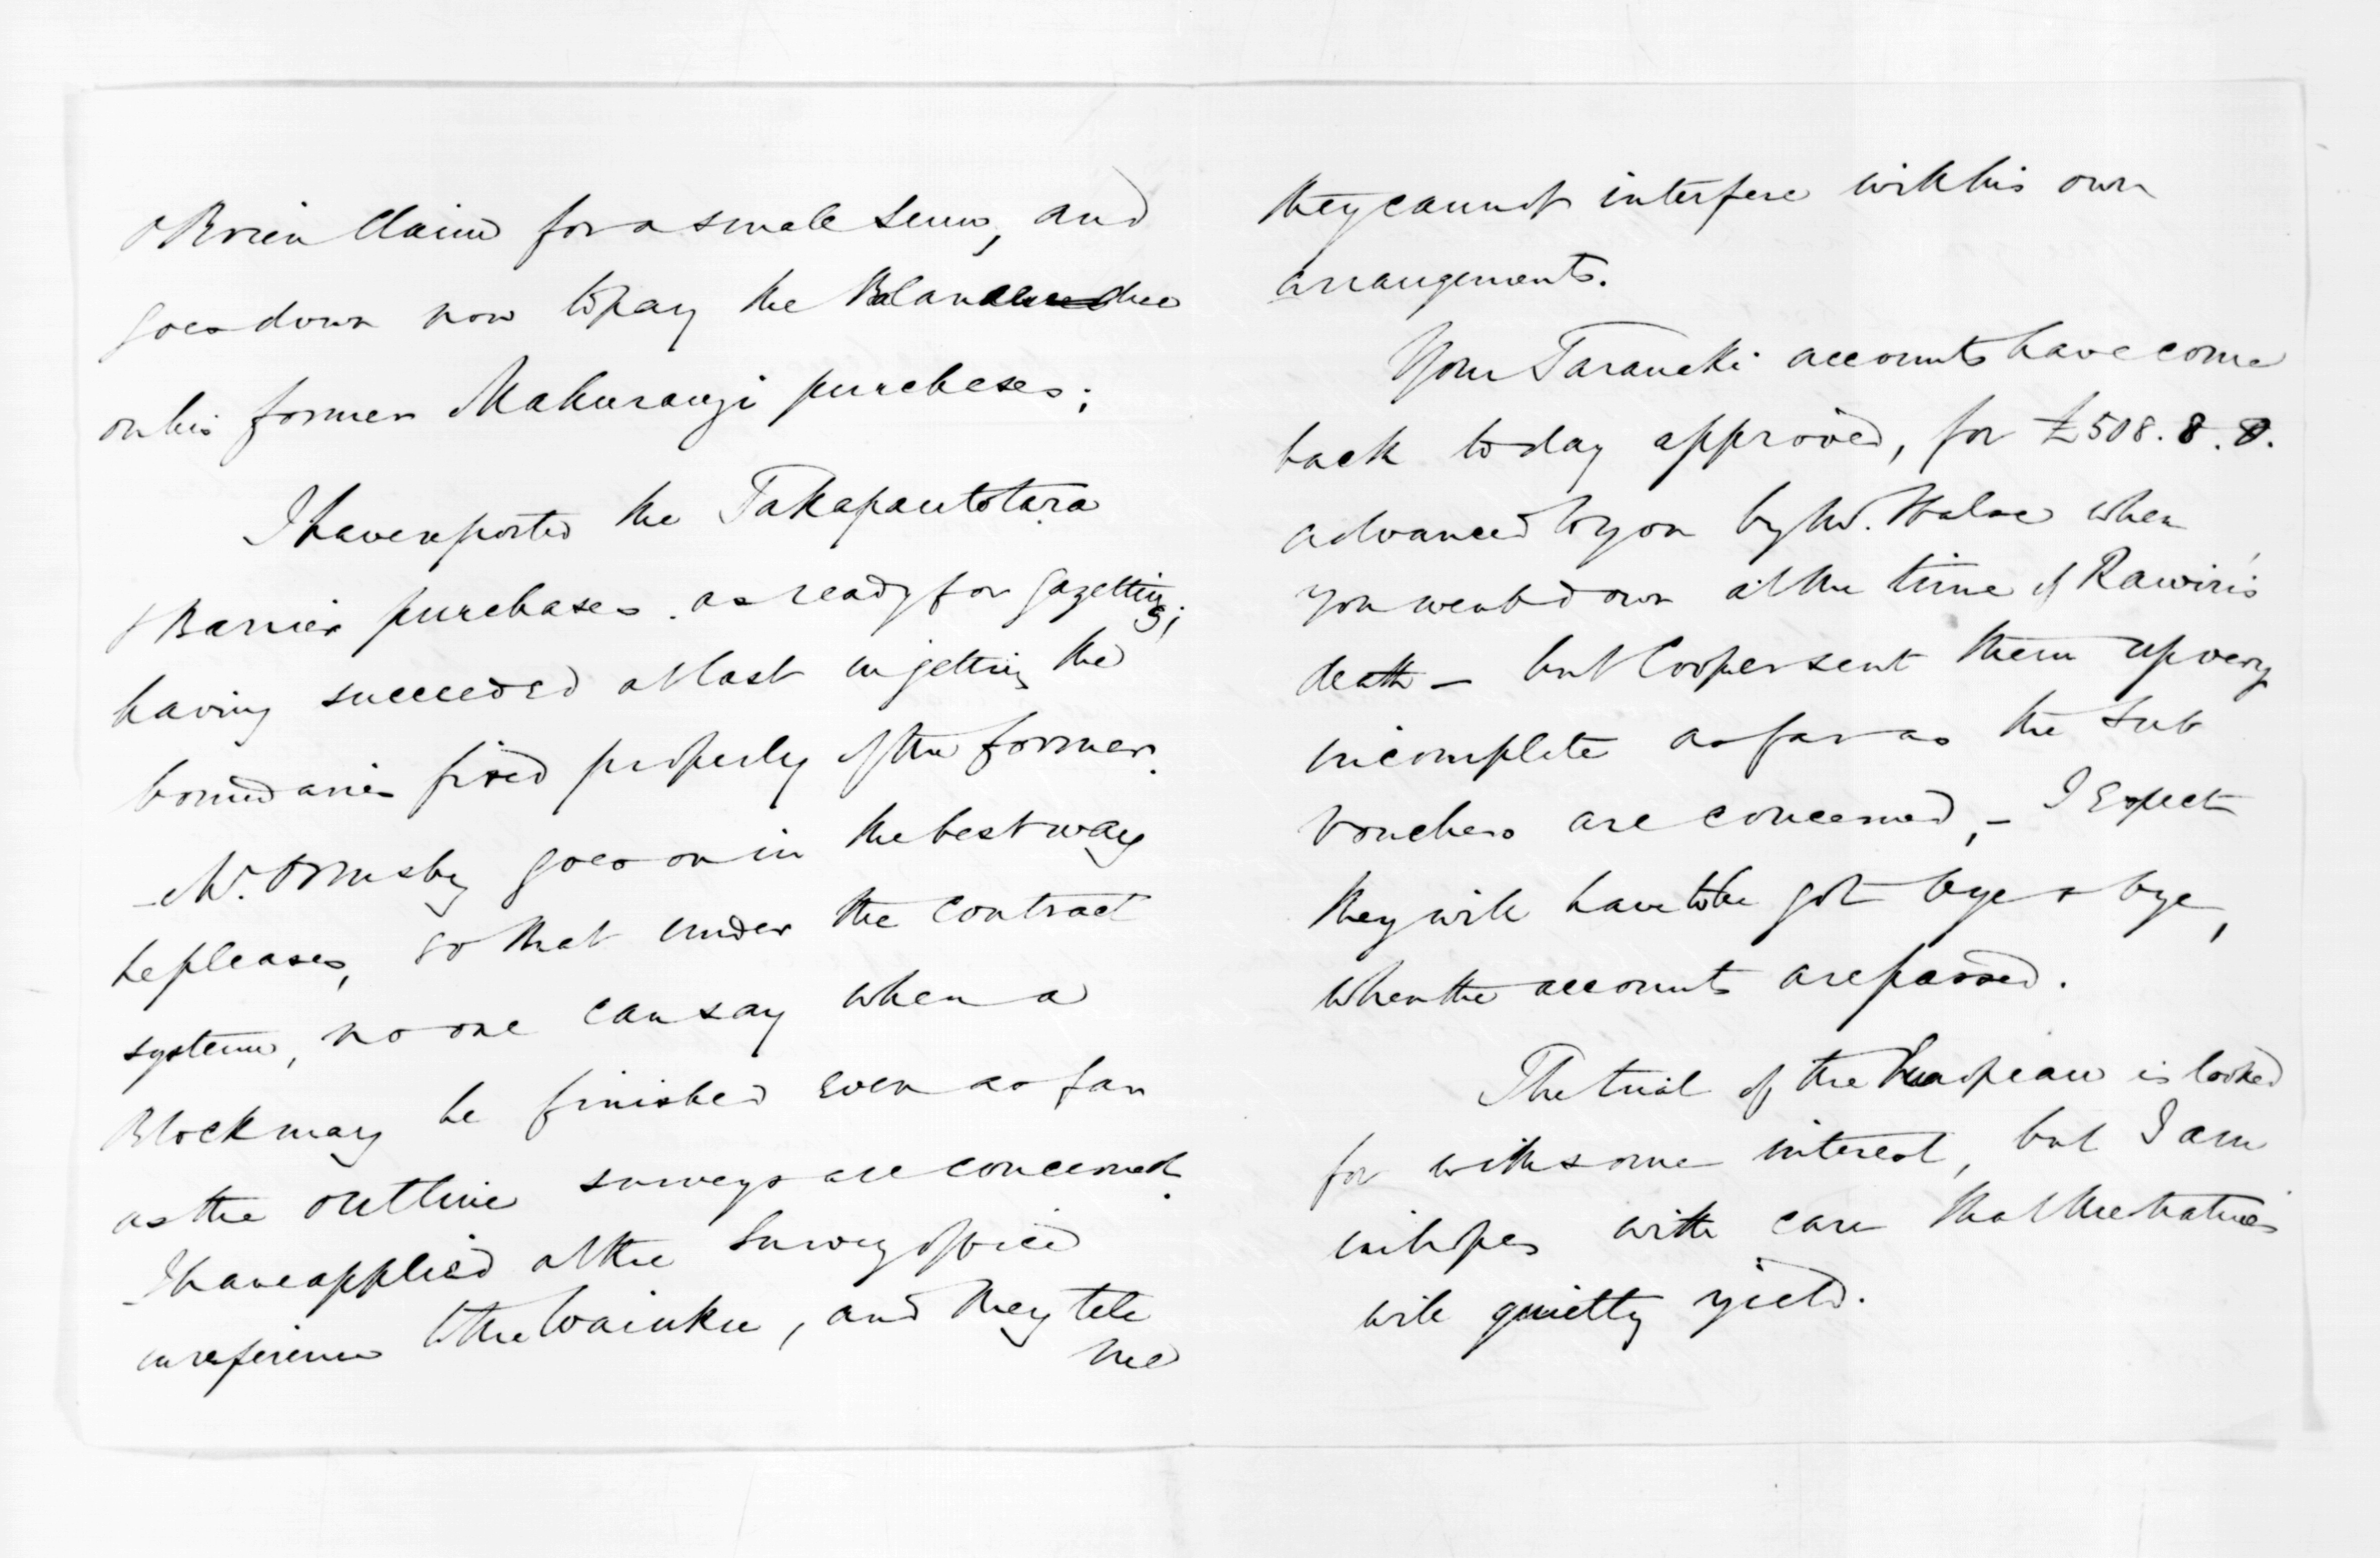 O'Brien Claim for a small sum, and
goes down now to pay the Balance due
on his former Mahurangi purchases;
I have reported the Takapautotara
& Barrier purchases. as ready for gazetting;
having succeeded at last in getting the
boundaries fixed properly of the former.
- Mr. Ormsby goes on in the best way
he pleases, so that under the contract
system, no one can say when a
Block may be finished even as far
as the outline surveys are concerned.
I have applied at the Survey office
in reference to the Waiuku, and they tell
me
they cannot interfere with his own
arrangements.
Your Taranaki accounts have come
back today approved, for £508.8.8.
advanced to you by Mr. Halse when
you went down at the time of Rawiri's
death - but Cooper sent them up very
incomplete as far as the Sub
vouchers are concerned, - I expect
they will have to be got bye & bye,
when the accounts are passed.
The trial of the European is looked
for with some interest, but I am
in hopes with care that the natives
will quietly yield.